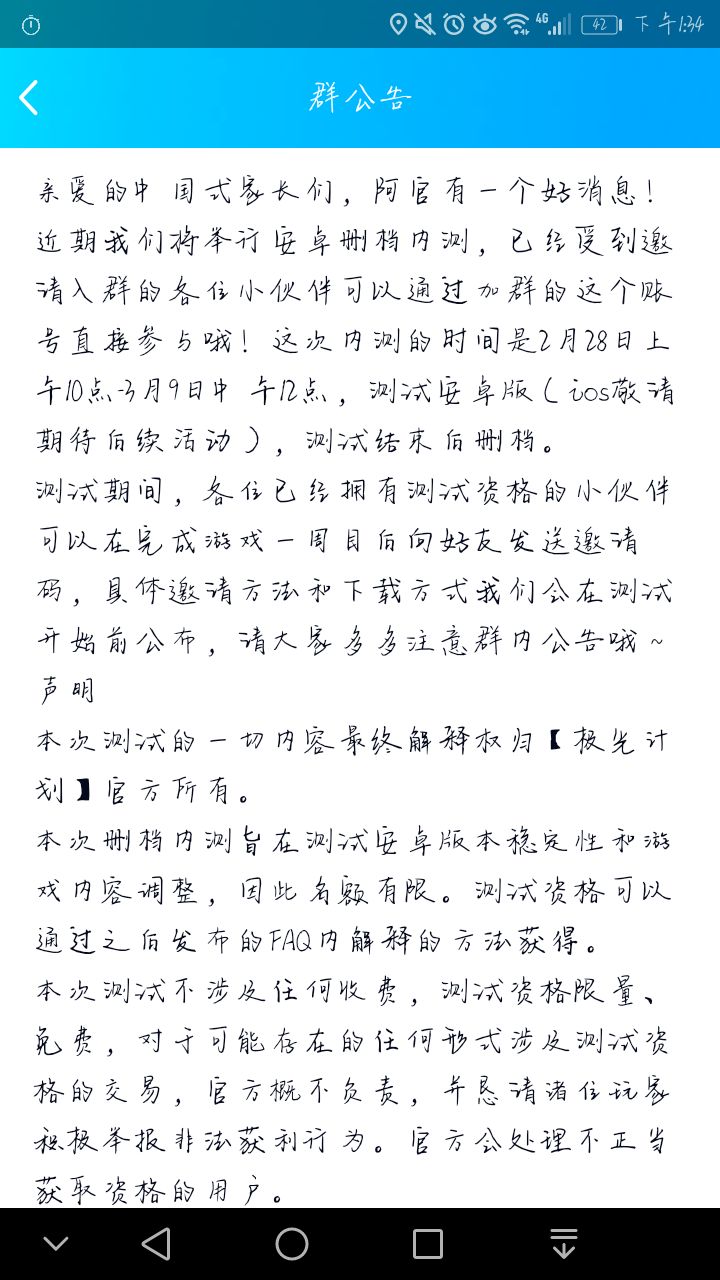 4G 42 下午1:34
群公告
亲爱的中国式家长们，阿官有一个好消息！
近期我们将举行安卓删档内测，已经受到邀
请入群的各位小伙伴可以通过加群的这个账
号直接参与哦！这次内测的时间是2月28日上
午10点-3月9日中午12点，测试安卓版（ios敬请
期待后续活动），测试结束后删档。
测试期间，各位已经拥有测试资格的小伙伴
可以在完成游戏一周目后向好友发送邀请
码，具体邀请方法和下载方式我们会在测试
开始前公布，请大家多多注意群内公告哦~
声明
本次测试的一切内容最终解释权归【极光计
划】官方所有。
本次删档内测旨在测试安卓版本稳定性和游
戏内容调整，因此名额有限。测试资格可以
通过之后发布的FAQ内解释的方法获得。
本次测试不涉及任何收费，测试资格限量、
免费，对于可能存在的任何形式涉及测试资
格的交易，官方概不负责，并恳请诸位玩家
积极举报非法获利行为。官方会处理不正当
获取资格的用户。